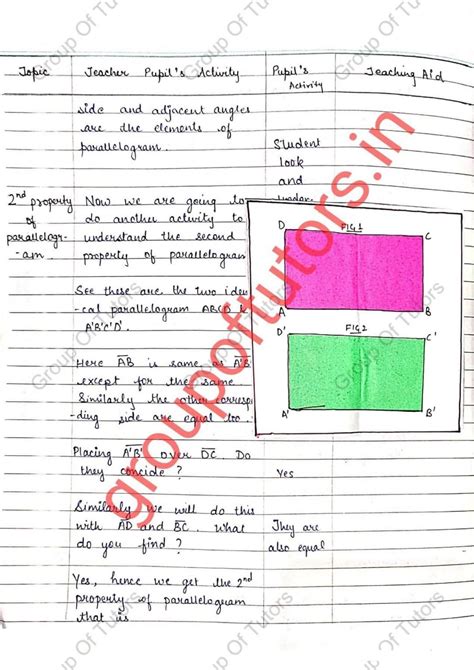 Topic
Teacher Pupil's Activity
Pupil's Activity
Teaching Aid
side and adjacent angles
are the elements of
parallelogram.
Student
look
and
2nd property
of
parallelogr-
-am
Now we are going to
do another activity to
understand the second
property of parallelogram
See these are the two iden
-cal parallelogram ABCD &
A'B'C'D'.
Here AB is same as A'B'
except for the same.
Similarly the other corresp
-ding side are equal too.
Placing A'B' over DC. Do
they concide ?
Yes
Similarly we will do this
with AD and BC. What
do you find ?
They are
also equal
Yes, hence we get the 2nd
property of parallelogram
that is
D
FIG 1
C
A
B
D'
FIG 2
C'
A'
B'
groupoftutors.in
Group Of Tutors
Group Of Tutors
Group Of Tutors
Group Of Tutors
Group Of Tutors
Group Of Tutors
Group Of Tutors
Group Of Tutors